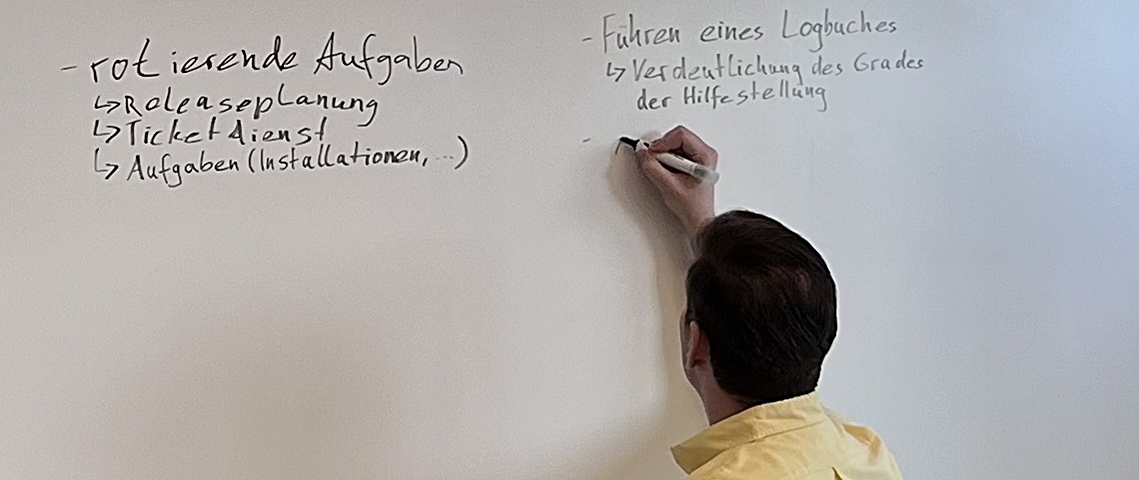 - rotierende Aufgaben
↳ Releaseplanung
↳ Ticketdienst
↳ Aufgaben (Installationen, ...)
- Führen eines Logbuches
↳ Verdeutlichung des Grades
der Hilfestellung
-